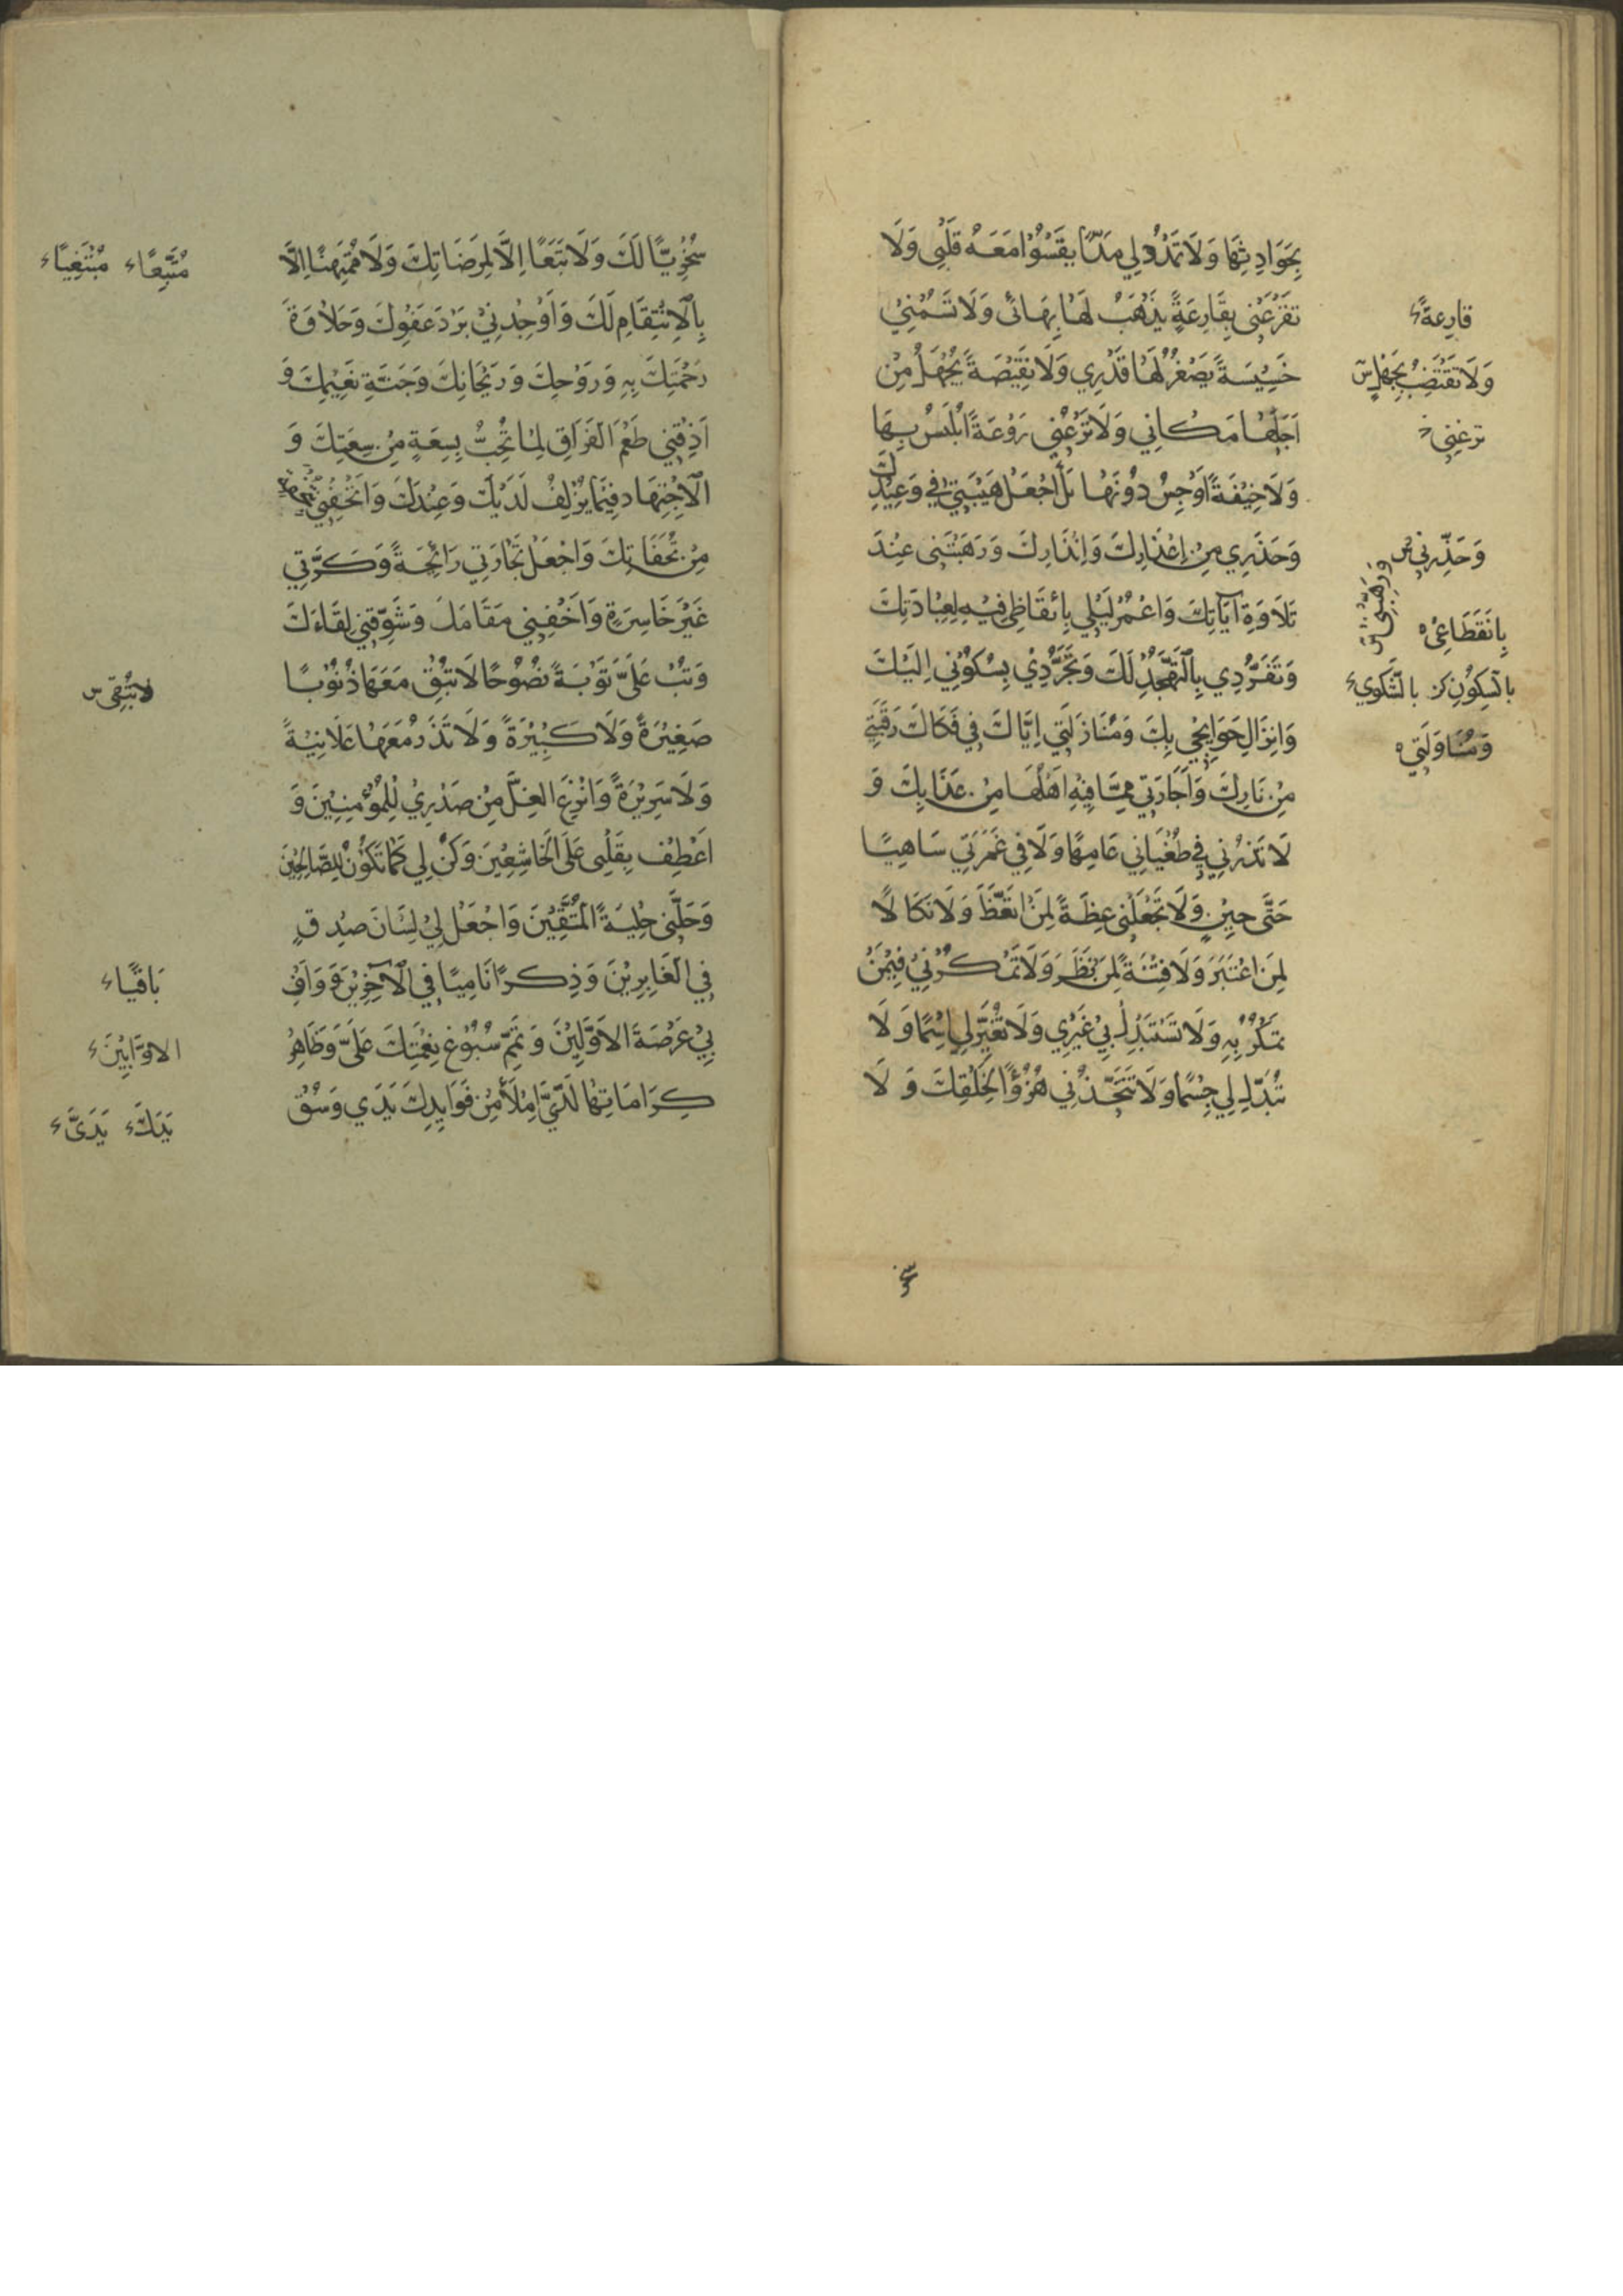 بِحَوَادِثِهَا وَلَا تَمْدُدْ لِي مَدًّا يَقْسُوْا مَعَهُ قَلْبِي وَلَا
تَقْرَعْنِي بِقَارِعَةٍ يَذْهَبُ لَهَا بَهَائِي وَلَا تَسُمْنِيْ
خَسِيْسَةً يَصْغُرُ لَهَا قَدْرِي وَلَا نَقِيْصَةً يُجْهَلُ مِنْ
اَجْلِهَا مَكَانِي وَلَا تَرُعْنِي رَوْعَةً اُبْلَسُ بِهَا
وَلَا خِيْفَةً اُوْجِسُ دُوْنَهَا بَلْ اَجْعَلْ هَيْبَتِيْ فِي وَعِيْدِكَ
وَحَذَرِي مِنْ اِعْذَارِكَ وَاِنْذَارِكَ وَرَهْبَتِي عِنْدَ
تِلَاوَةِ آيَاتِكَ وَاعْمُرْ لَيْلِي بِاِيْقَاظِي فِيْهِ لِعِبَادَتِكَ
وَتَفَرُّدِي بِالتَّهَجُّدِ لَكَ وَتَجَرُّدِيْ بِسُكُوْنِي اِلَيْكَ
وَاِنْزَالِ حَوَايِجِي بِكَ وَمُنَازَلَتِي اِيَّاكَ فِي فَكَاكِ رَقَبَتِي
مِنْ نَارِكَ وَاَجَارَتِي مِمَّا فِيْهِ اَهْلُهَا مِنْ عَذَابِكَ وَ
لَا تَذَرْنِي فِي طُغْيَانِي عَامِهًا وَلَا فِي غَمْرَتِي سَاهِيًا
حَتَّى حِيْنٍ وَلَا تَجْعَلْنِي عِظَةً لِمَنْ اتَّعَظَ وَلَا نَكَالًا
لِمَنْ اعْتَبَرَ وَلَا فِتْنَةً لِمَنْ نَظَرَ وَلَا تَمْكُرْ بِيْ فِيْمَنْ
تَمْكُرُ بِهِ وَلَا تَسْتَبْدِلْ بِيْ غَيْرِي وَلَا تُغَيِّرْ لِي اِسْمًا وَلَا
تُبَدِّلْ لِي جِسْمًا وَلَا تَتَّخِذْنِي هُزُوًا لِخَلْقِكَ وَ لَا
قَارِعَةً
وَلَا تَقْتَضِبْ بِجَهْلٍ
ترعْنِي
وَحَذِّرْنِي
وَرَهِّبْنِي
بِانْقِطَاعِي
بِالسُّكُوْنِ بِالشَّكْوِي
وَمُنَاوَلَتِي
سُخْرِيًّا لَكَ وَلَا تَبَعًا اِلَّا لِمَرْضَاتِكَ وَلَا مُمْتَهَنًا اِلَّا
بِالْاِنْتِقَامِ لَكَ وَاَوْجِدْنِيْ بَرْدَ عَفْوِكَ وَحَلَاوَةَ
رَحْمَتِكَ بِهِ وَرَوْحِكَ وَرَيْحَانِكَ وَجَنَّةِ نَعِيْمِكَ وَ
اَذِقْنِي طَعْمَ الْفَرَاقِ لِمَا تُحِبُّ بِسِعَةٍ مِنْ سِعَتِكَ وَ
الْاِجْتِهَادِ فِيْمَا يُزْلِفُ لَدَيْكَ وَعِنْدَكَ وَاَتْحِفْنِي
مِنْ تُحَفَاتِكَ وَاجْعَلْ تِجَارَتِي رَابِحَةً وَكَرَّتِي
غَيْرَ خَاسِرَةٍ وَاَخِفْنِي مَقَامَكَ وَشَوِّقْنِي لِقَاءَكَ
وَتُبْ عَلَيَّ تَوْبَةً نَصُوْحًا لَا تُبْقِ مَعَهَا ذُنُوْبًا
صَغِيْرَةً وَلَا كَبِيْرَةً وَلَا تَذَرْ مَعَهَا عَلَانِيْةً
وَلَا سَرِيْرَةً وَانْزِعِ الْغِلَّ مِنْ صَدْرِيْ لِلْمُؤْمِنِيْنَ وَ
اعْطِفْ بِقَلْبِي عَلَى الْخَاشِعِيْنَ وَكُنْ لِي كَمَا تَكُوْنُ لِلصَّالِحِيْنَ
وَحَلِّنِي حِلْيَةَ الْمُتَّقِيْنَ وَاجْعَلْ لِيْ لِسَانَ صِدْقٍ
فِي الْغَابِرِيْنَ وَذِكْرًا نَامِيًا فِي الْآخِرِيْنَ وَوَافِ
بِيْ عَرْصَةَ الْاَوَّلِيْنَ وَتَمِّمْ سُبُوْغَ نِعْمَتِكَ عَلَيَّ وَظَاهِرْ
كَرَامَاتِهَا لَدَيَّ اِمْلَأْ مِنْ فَوَايِدِكَ يَدَي وَسُقْ
مُتَّبِعًا مُبْتَغِيًا
لَا تُبْقِي
بَاقِيًا
الاوَّابِيْنَ
يَدَيَّ